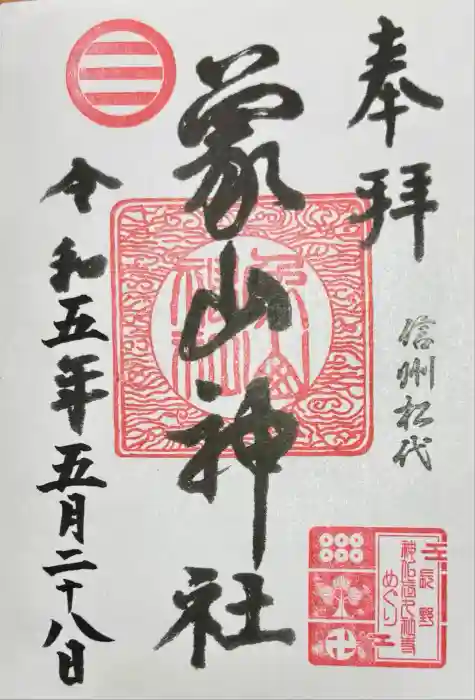 奉拝
信州松代
象山神社
令和五年五月二十八日
象山神社
長野
めぐり